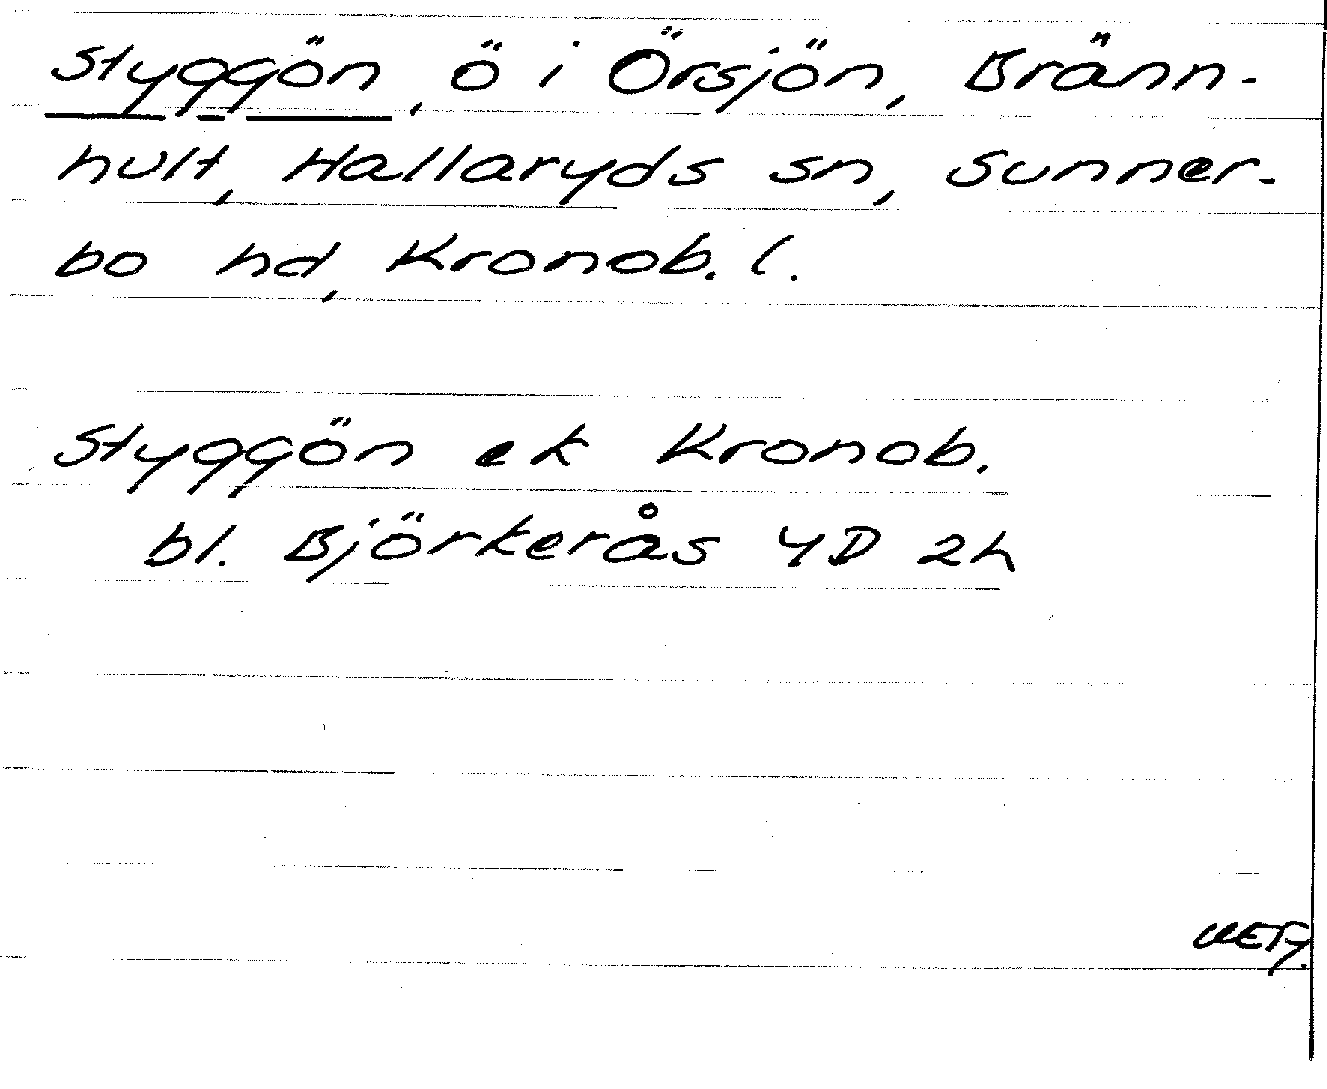 Styggön, ö i Örsjön, Bränn-
hult, Hallaryds sn, Sunner-
bo hd, Kronob. l.
Styggön ek Kronob.
bl. Björkerås 4D 2h